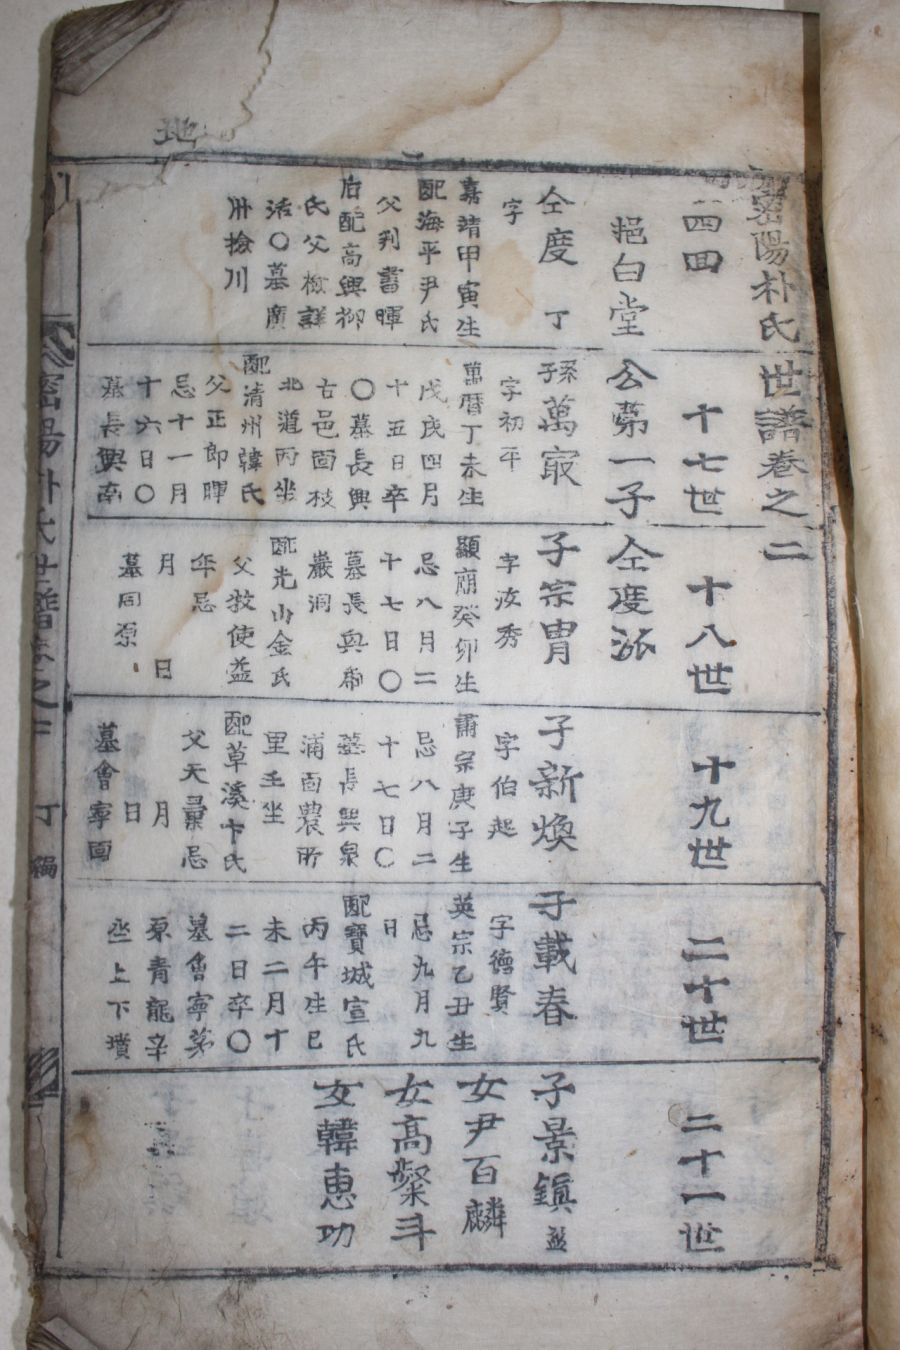 地
密陽朴氏世譜卷之二
一四四
挹白堂
仝度 丁
字
嘉靖甲寅生
配海平尹氏
父判書暉
后配高興柳
氏父檢詳
活〇墓廣
州檢川
十七世
公第一子
孫萬㝡
字初平
萬曆丁未生
戊戌四月
十五日卒
〇墓長興
古邑面枝
北道丙坐
配清州韓氏
父正郎暉
忌十一月
十六日〇
墓長興南
十八世
仝度派
子宗胄
字汝秀
顯廟癸卯生
忌八月二
十七日〇
墓長興
巖洞
配光山金氏
父牧使益
年忌
月 日
墓同原
十九世
子新煥
字伯起
肅宗庚子生
忌八月二
十七日〇
墓長興泉
浦面農所
里壬坐
配草溪卞氏
父天彙忌
月
日
墓會寧面
二十世
子載春
字德賢
英宗乙丑生
忌九月九
日
配寶城宣氏
丙午生巳
未二月十
二日卒〇
墓會寧茅
原青龍辛
坐上下墳
二十一世
子景鎭
女尹百麟
女高粲斗
女韓惠功
密陽朴氏世譜卷之二 丁編